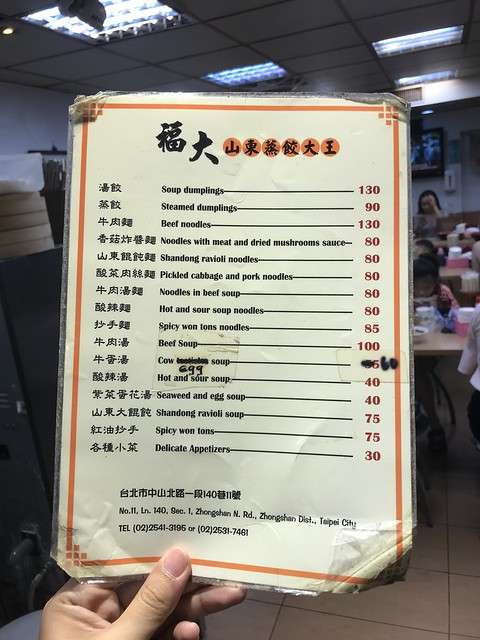 福大 山東蒸餃大王
湯餃 Soup dumplings 130
蒸餃 Steamed dumplings 90
牛肉麵 Beef noodles 130
香菇炸醬麵 Noodles with meat and dried mushrooms sauce 80
山東餛飩麵 Shandong ravioli noodles 80
酸菜肉絲麵 Pickled cabbage and pork noodles 80
牛肉湯麵 Noodles in beef soup 80
酸辣麵 Hot and sour soup noodles 80
抄手麵 Spicy won tons noodles 85
牛肉湯 Beef Soup 100
牛蛋湯 Cow egg soup 60
酸辣湯 Hot and sour soup 40
紫菜蛋花湯 Seaweed and egg soup 40
山東大餛飩 Shandong ravioli soup 75
紅油抄手 Spicy won tons 75
各種小菜 Delicate Appetizers 30
台北市中山北路一段140巷11號
No.11, Ln. 140, Sec. 1, Zhongshan N. Rd., Zhongshan Dist., Taipei City
TEL (02)2541-3195 or (02)2531-7461